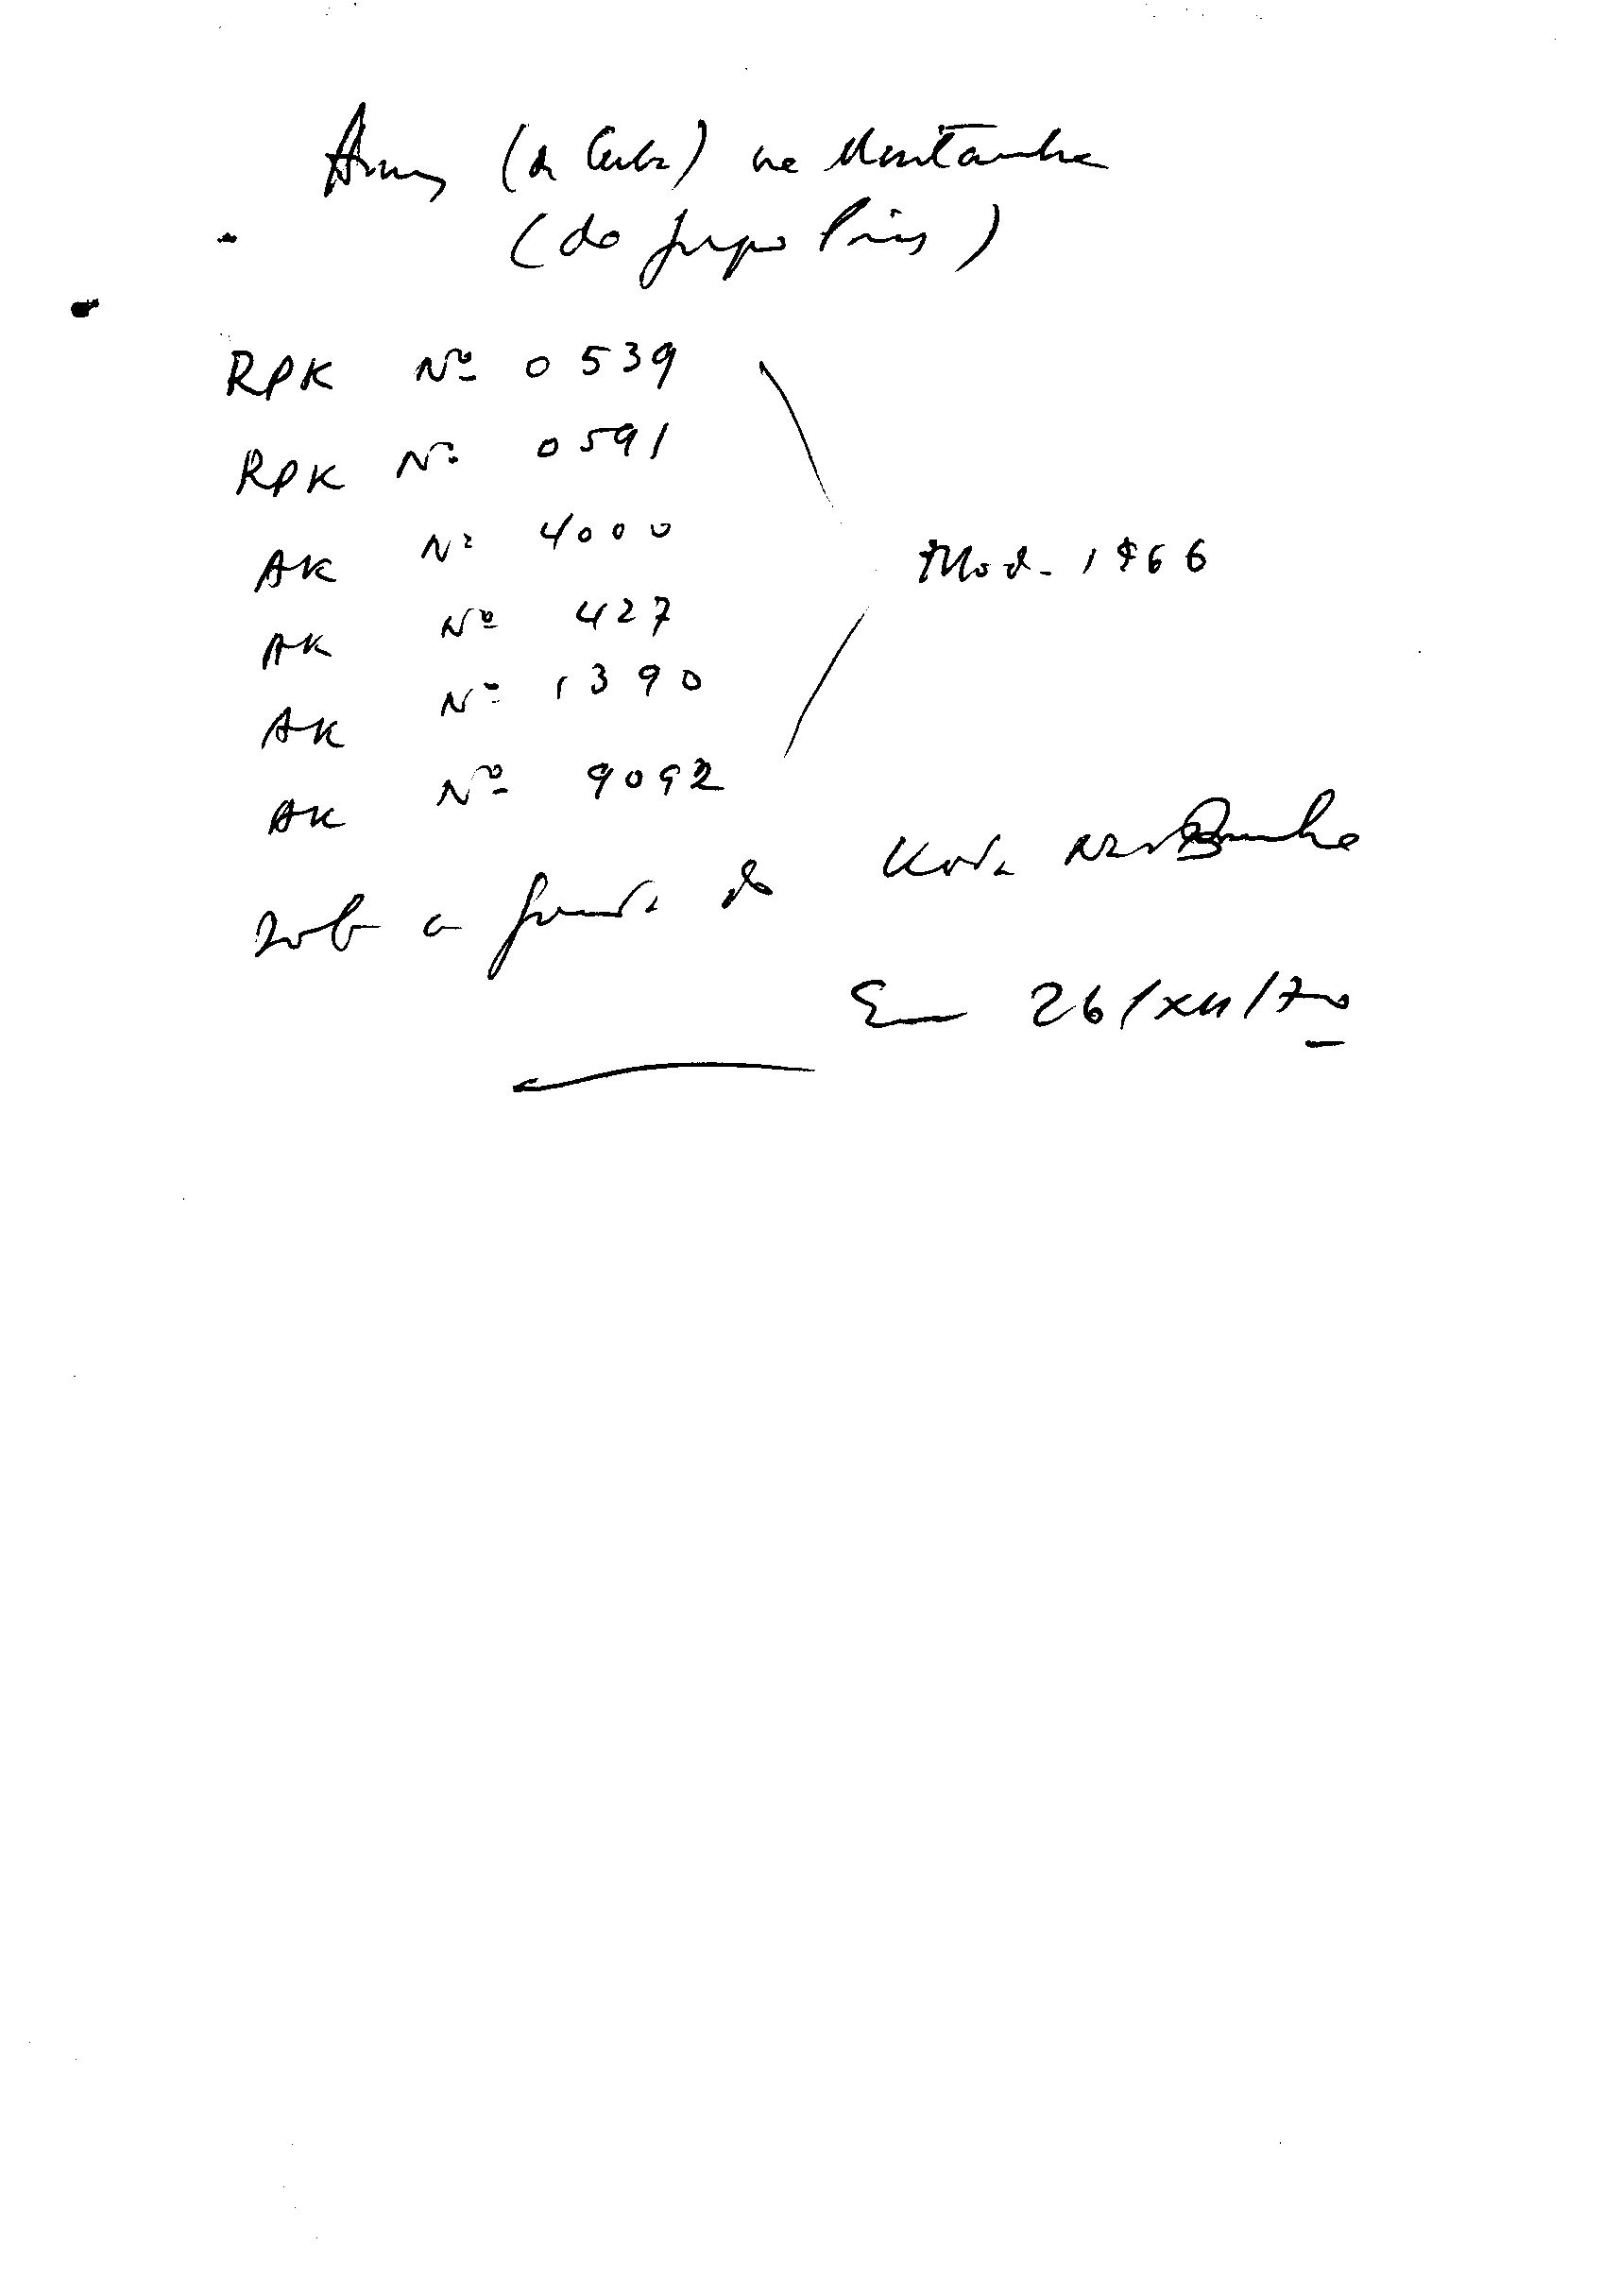 Armas (de Cuba) na Montanha
(do grupo Pires)
RPK Nº 0539
RPK Nº 0591
AK Nº 4000
AK Nº 427
Mod. 1966
AK Nº 1390
AK Nº 9092
sob a guarda do Kota Na Banha
Em 26/XII/70